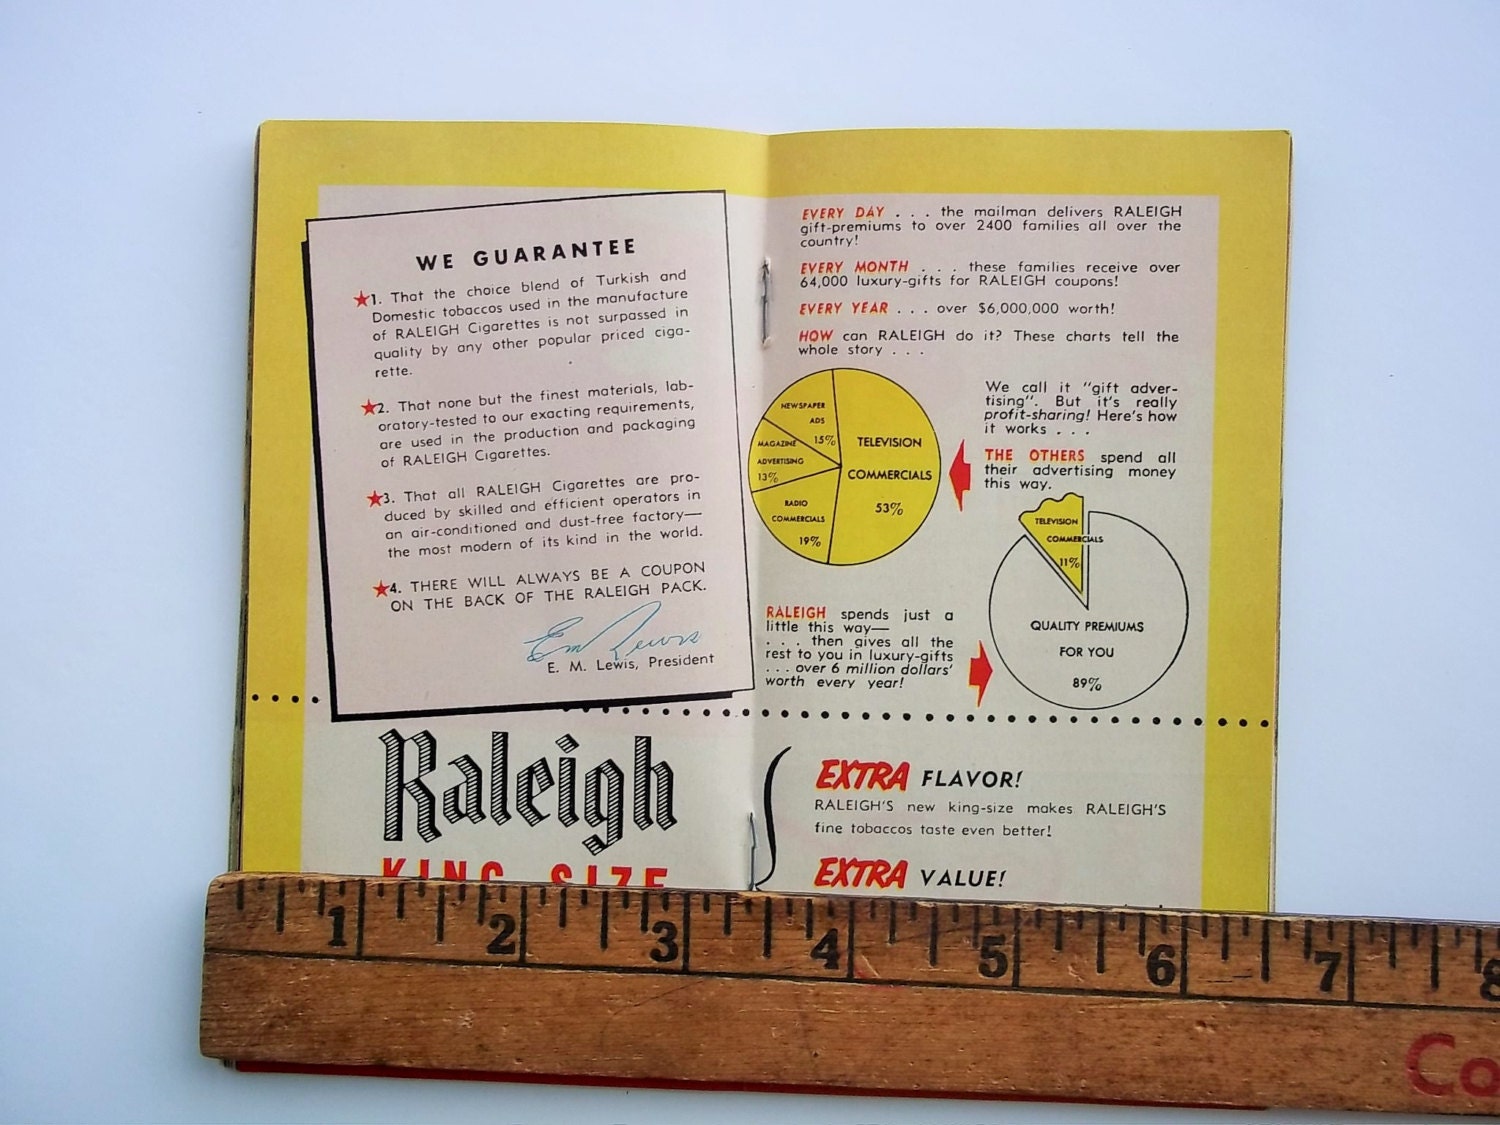 WE GUARANTEE
★1. That the choice blend of Turkish and
Domestic tobaccos used in the manufacture
of RALEIGH Cigarettes is not surpassed in
quality by any other popular priced ciga-
rette.
★2. That none but the finest materials, lab-
oratory-tested to our exacting requirements,
are used in the production and packaging
of RALEIGH Cigarettes.
★3. That all RALEIGH Cigarettes are pro-
duced by skilled and efficient operators in
an air-conditioned and dust-free factory—
the most modern of its kind in the world.
★4. THERE WILL ALWAYS BE A COUPON
ON THE BACK OF THE RALEIGH PACK.
Em Lewis
E. M. Lewis, President
Raleigh
KING SIZE
EVERY DAY . . . the mailman delivers RALEIGH
gift-premiums to over 2400 families all over the
country!
EVERY MONTH . . . these families receive over
64,000 luxury-gifts for RALEIGH coupons!
EVERY YEAR . . . over $6,000,000 worth!
HOW can RALEIGH do it? These charts tell the
whole story . . .
NEWSPAPER
ADS
15%
MAGAZINE
ADVERTISING
13%
RADIO
COMMERCIALS
19%
TELEVISION
COMMERCIALS
53%
We call it "gift adver-
tising". But it's really
profit-sharing! Here's how
it works . . .
THE OTHERS spend all
their advertising money
this way.
TELEVISION
COMMERCIALS
11%
QUALITY PREMIUMS
FOR YOU
89%
RALEIGH spends just a
little this way—
. . . then gives all the
rest to you in luxury-gifts
. . . over 6 million dollars'
worth every year!
EXTRA FLAVOR!
RALEIGH'S new king-size makes RALEIGH'S
fine tobaccos taste even better!
EXTRA VALUE!
1 2 3 4 5 6 7 8
Co